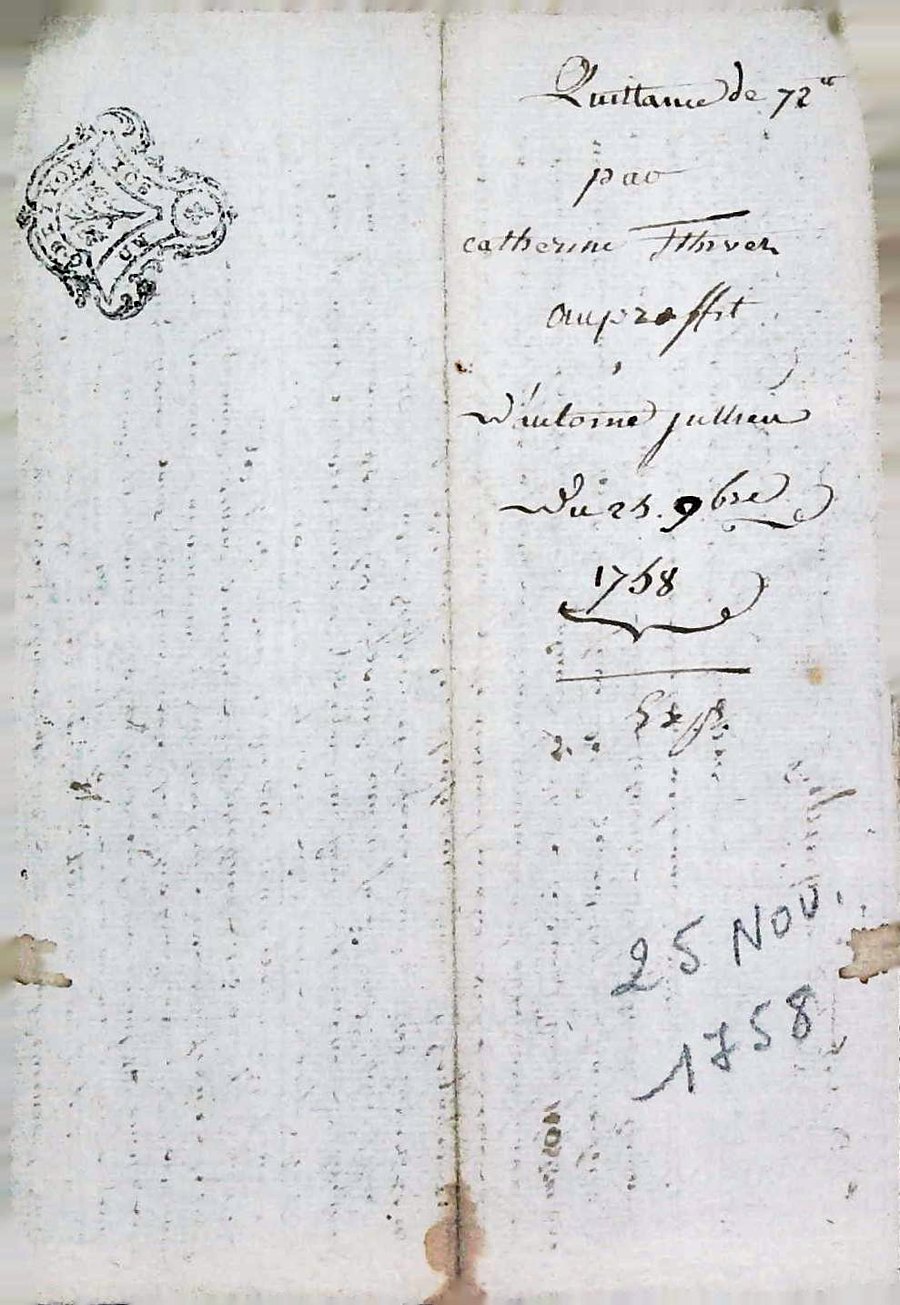 Quittance de 72tt
par
catherine Thiver
auproffit
d'antoine jullien
Du 25. 9bre
1758
Expd.
25 NOV.
1758